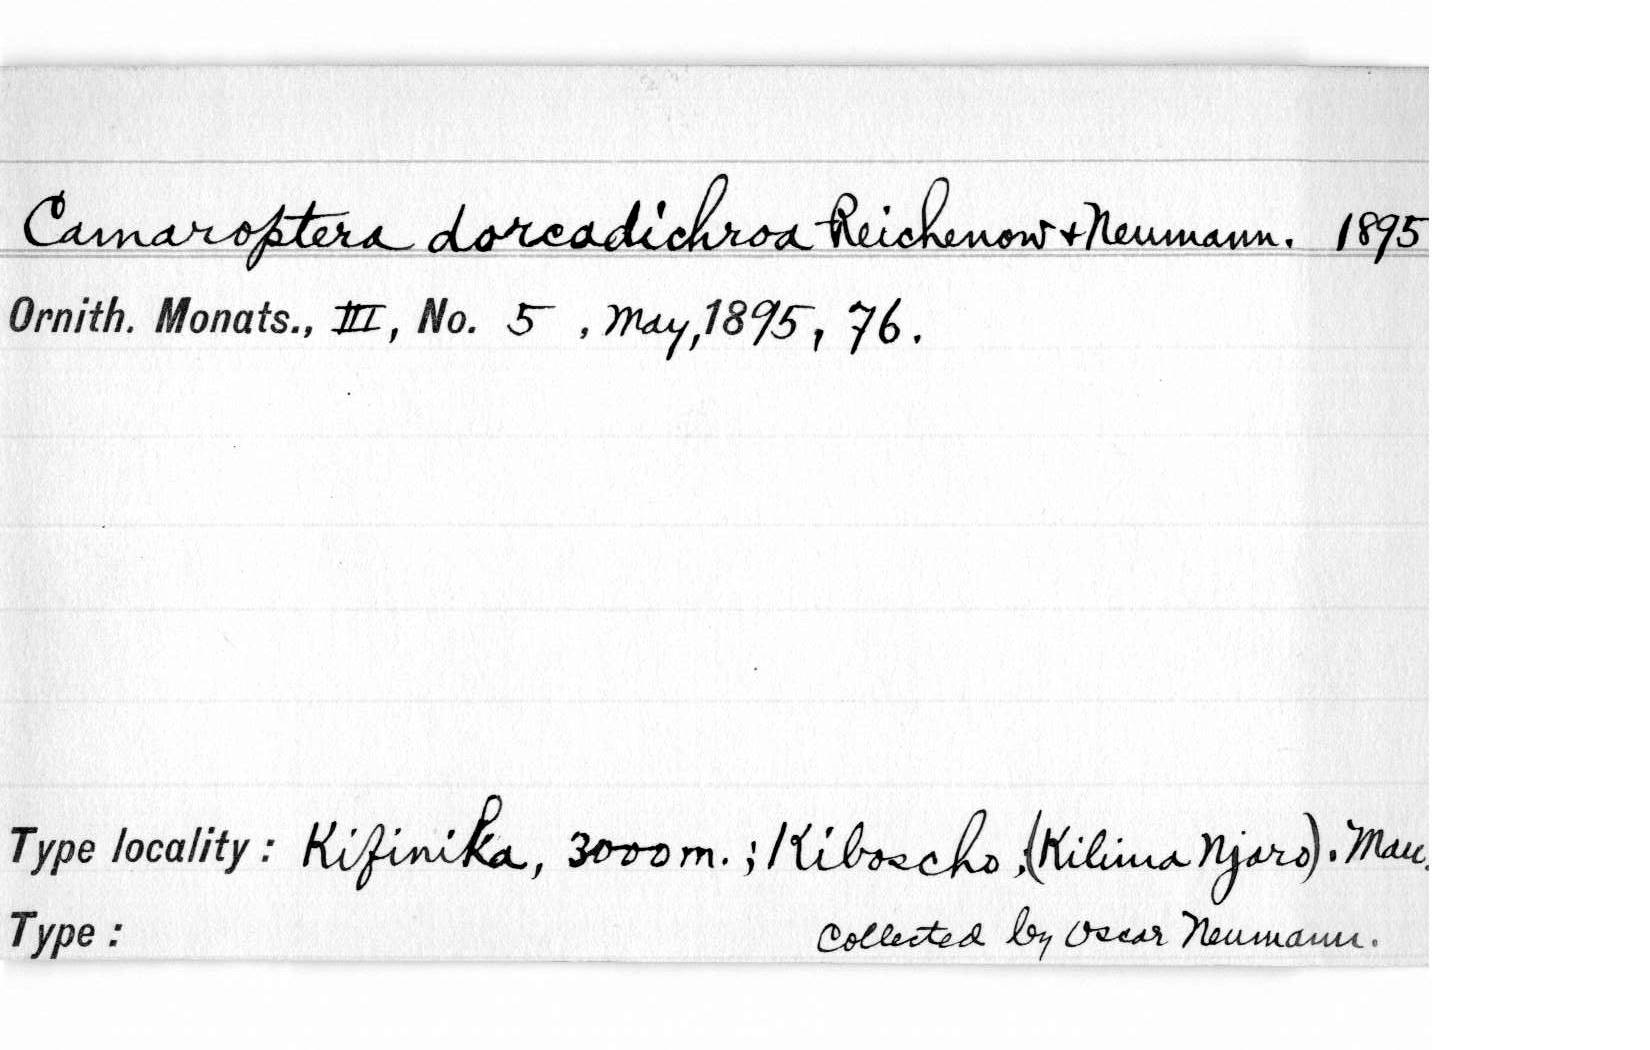 Camaroptera dorcadichroa Reichenow + Neumann. 1895
Ornith. Monats., III, No. 5, May, 1895, 76.
Type locality: Kifinika, 3000 m.; Kiboscho, (Kilima Njaro). Mau.
Type: Collected by Oscar Neumann.